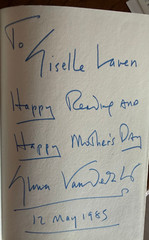 To
Giselle Laven
Happy Reading and
Happy Mother's Day
12 May 1985